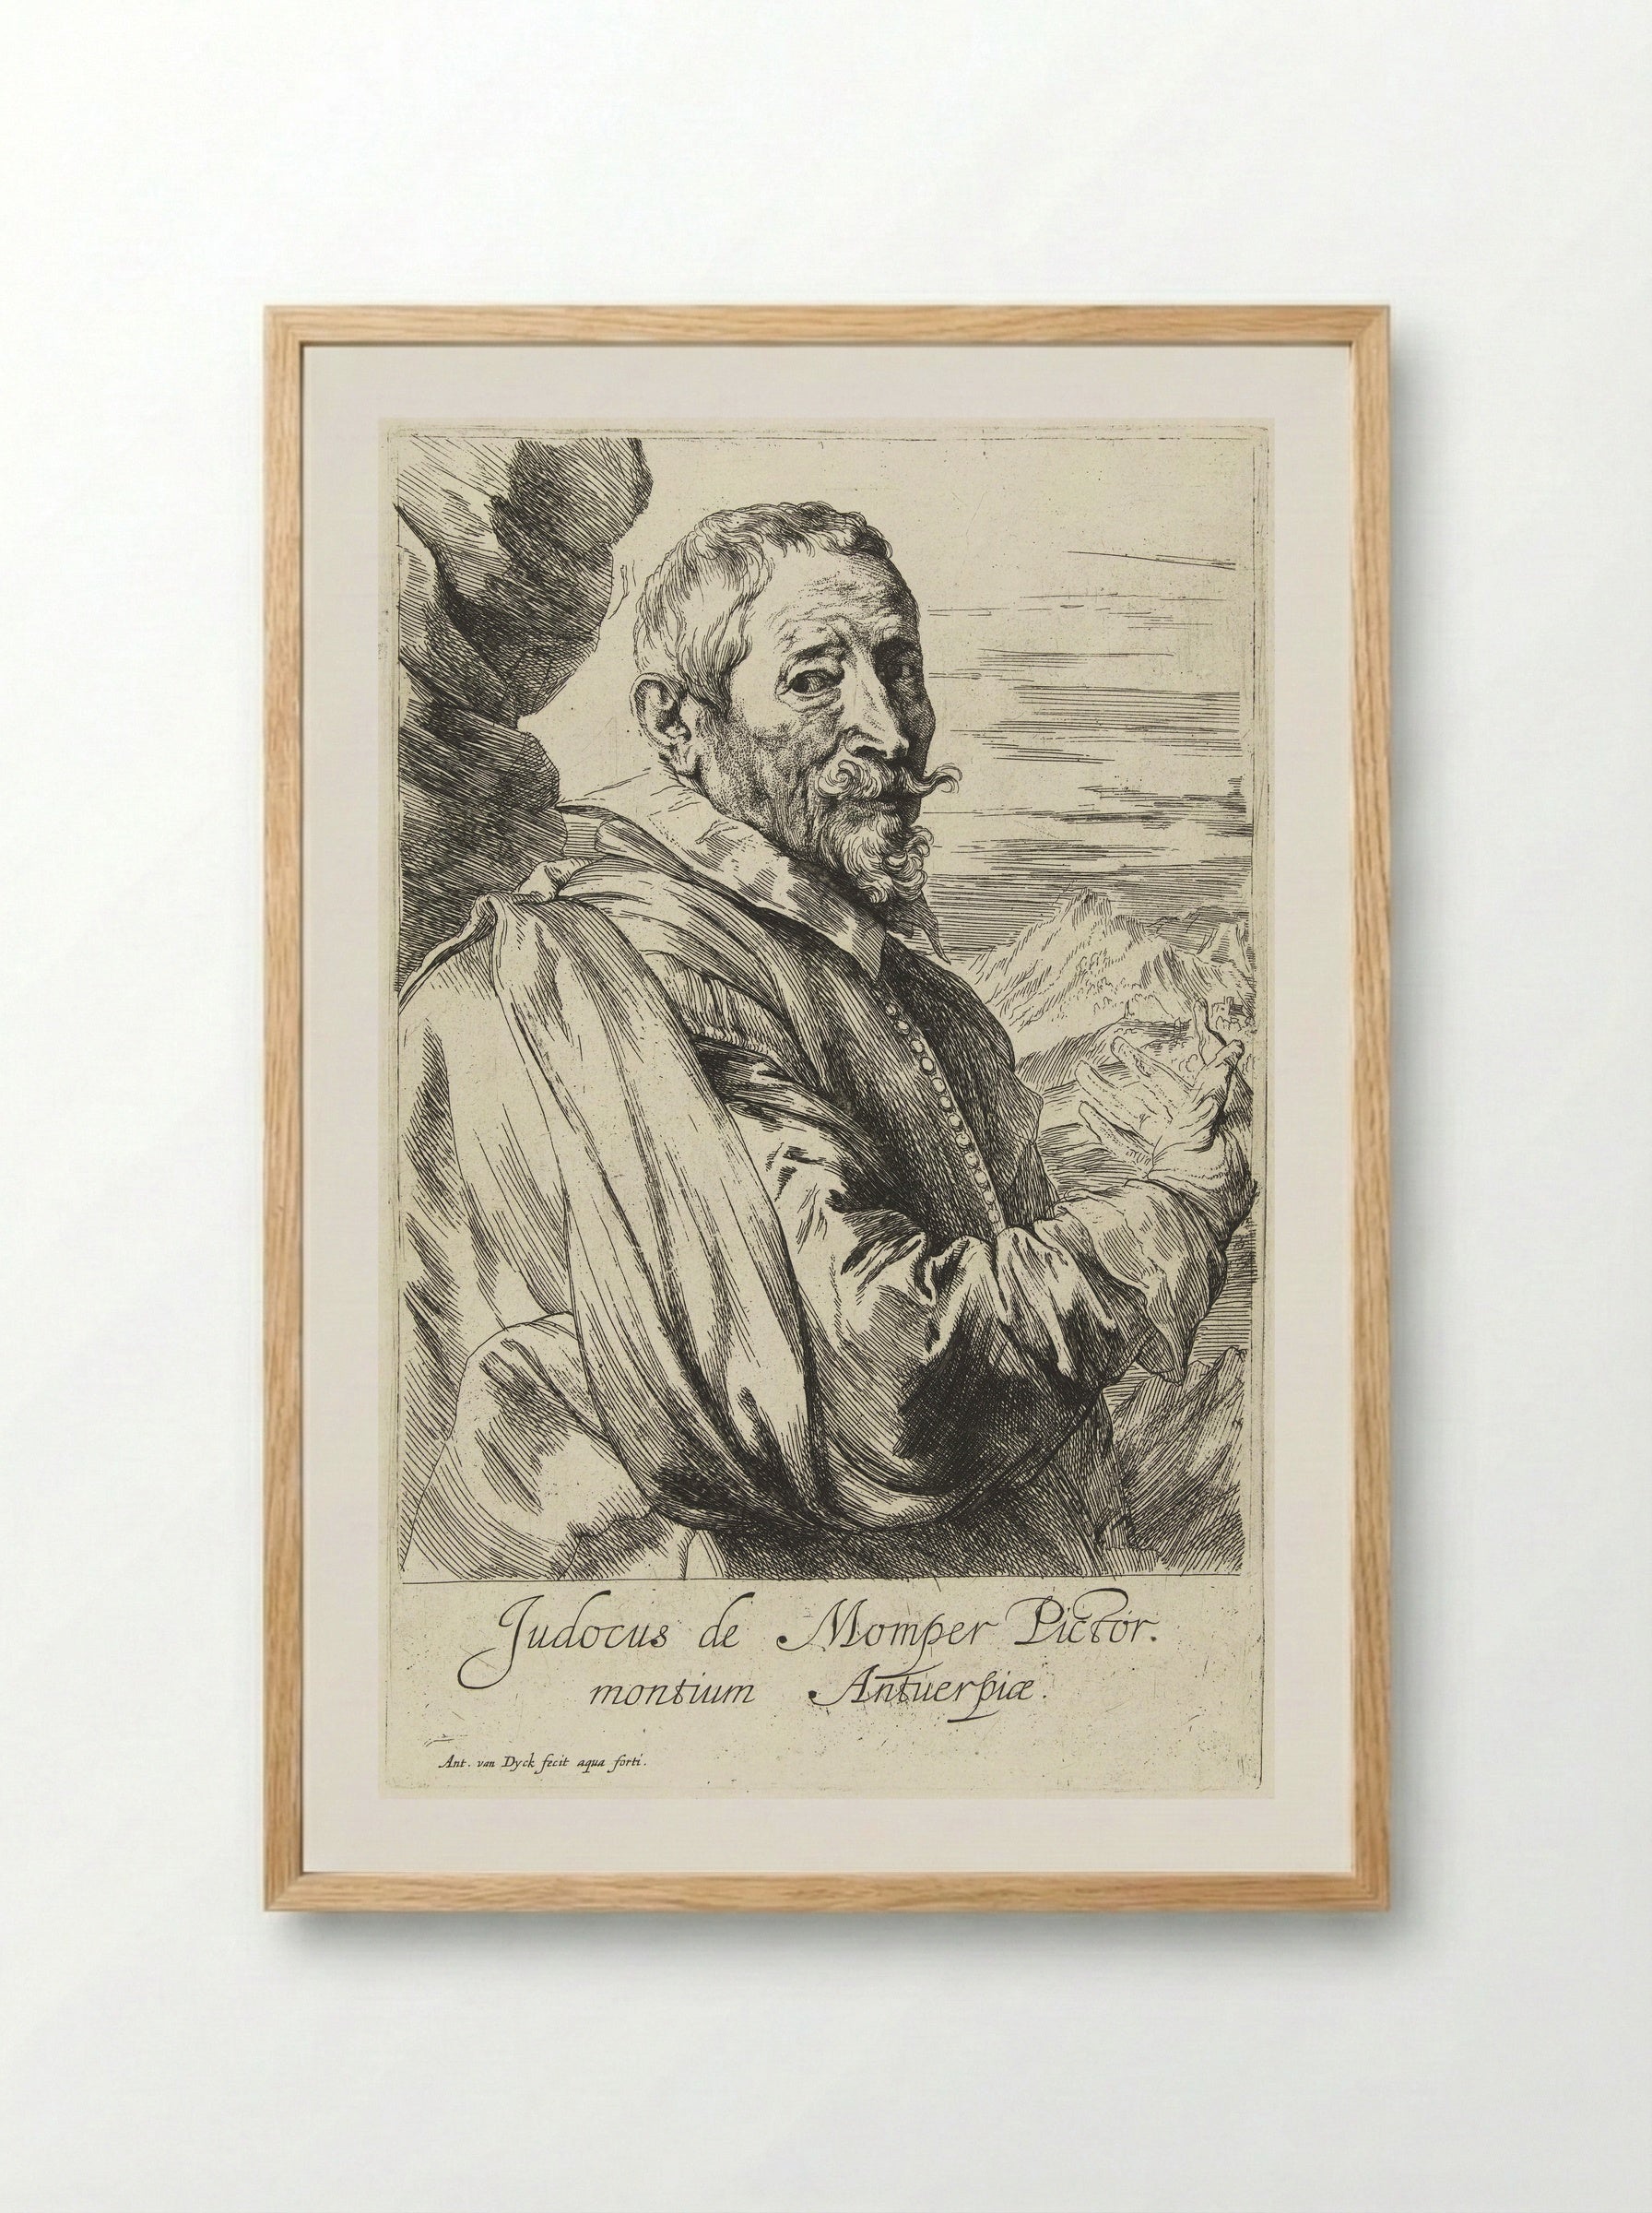 Judocus de Momper Pictor.
montium Antuerpiæ.
Ant. van Dyck fecit aqua forti.